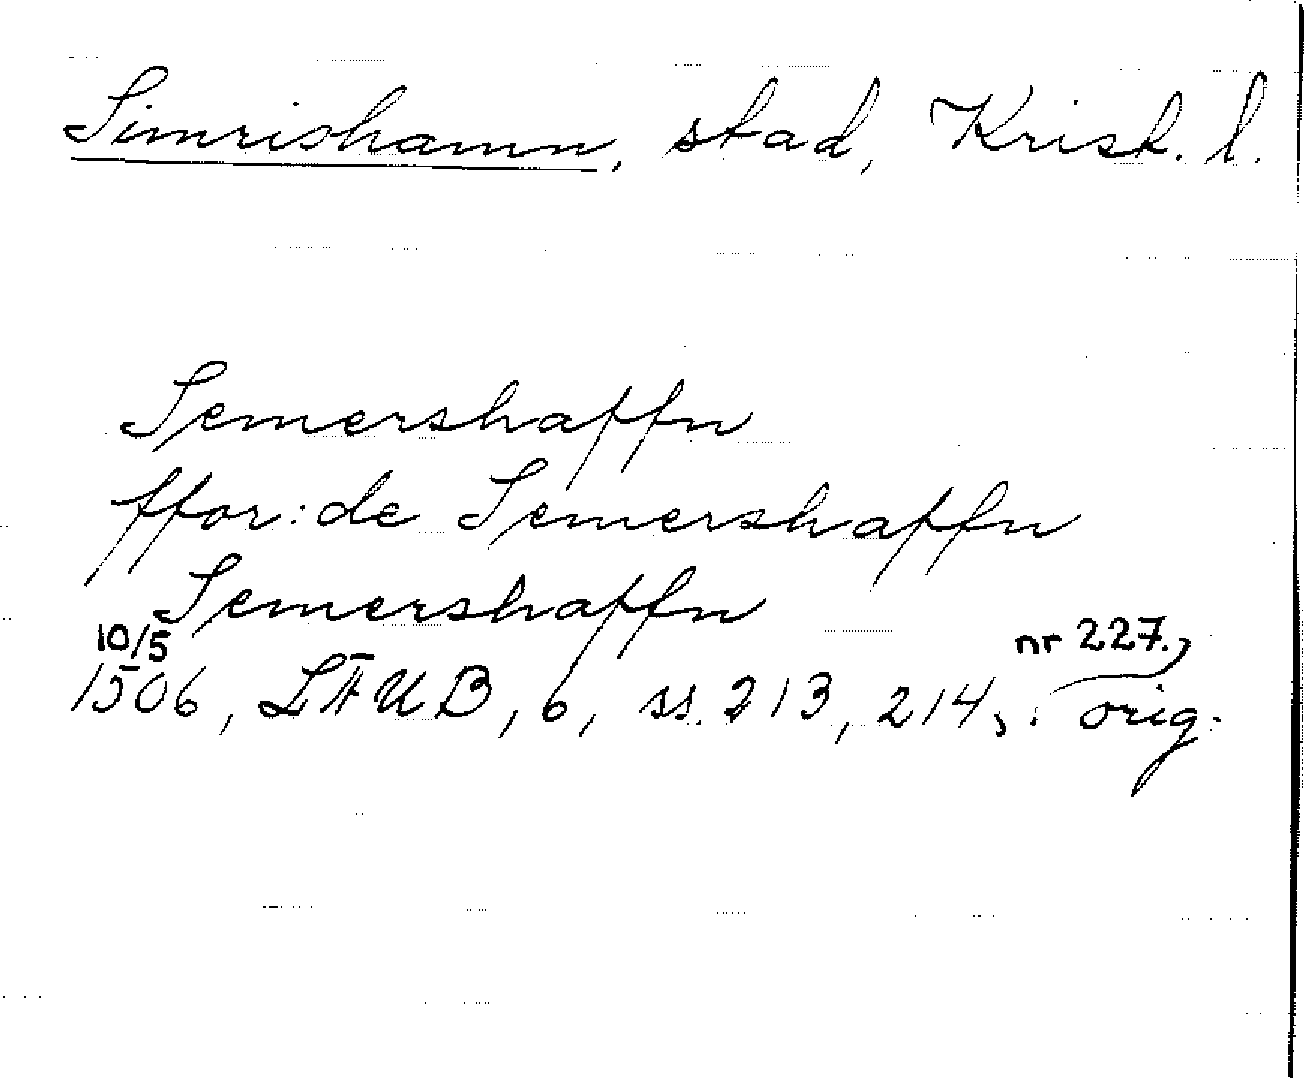 Simrishamn, stad, Krist. l.
Semershaffn
ffor: de Semershaffn
Semershaffn
10/5
nr 227.,
1506, LÄUB, 6, ss. 213, 214, orig.